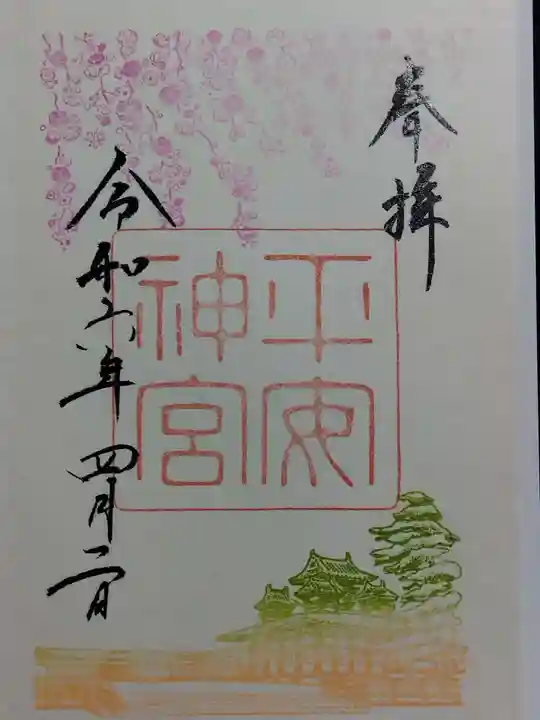 奉拝
平安
神宮
令和六年 四月二日